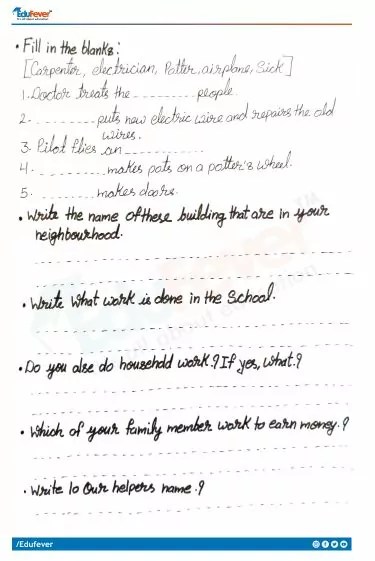 EduFever
• Fill in the blanks:
[Carpenter, electrician, Potter, airplane, Sick]
1. Doctor treats the _________ people.
2. ________ puts new electric wire and repairs the old
wires.
3. Pilot flies an __________.
4. ________ makes pots on a potter's wheel.
5. ________ makes doors.
• Write the name of these building that are in your
neighbourhood.
• Write What work is done in the School.
• Do you also do household work.? If yes, what.?
• Which of your family member work to earn money.?
• Write 10 Our helpers name.?
/Edufever